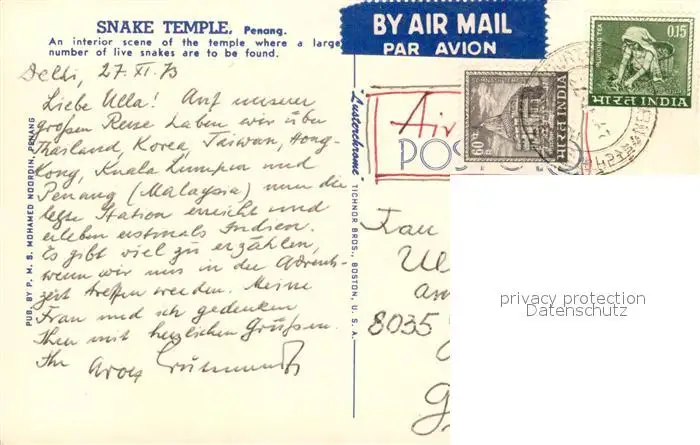 SNAKE TEMPLE, Penang.
An interior scene of the temple where a large
number of live snakes are to be found.
Delhi, 27. XI. 73
Liebe Ulla! Auf unserer
großen Reise haben wir über
Thailand, Korea, Taiwan, Hong-
kong, Kuala Lumpur und
Penang (Malaysia) nun die
letzte Station erreicht und
erleben erstmals Indien.
Es gibt viel zu erzählen,
wenn wir uns in der Advents-
zeit treffen werden. Meine
Frau und ich gedenken
Ihrer mit herzlichen Grüßen.
Ihr
PUB. BY P. M. S. MOHAMED NOORDIN, PENANG
"Lusterchrome"
TICHNOR BROS., BOSTON, U. S. A.
BY AIR MAIL
PAR AVION
Air
POST
60
भारत INDIA
PLUCKING TEA
0.15
भारत INDIA
Frau
Ul
am
8035
privacy protection
Datenschutz